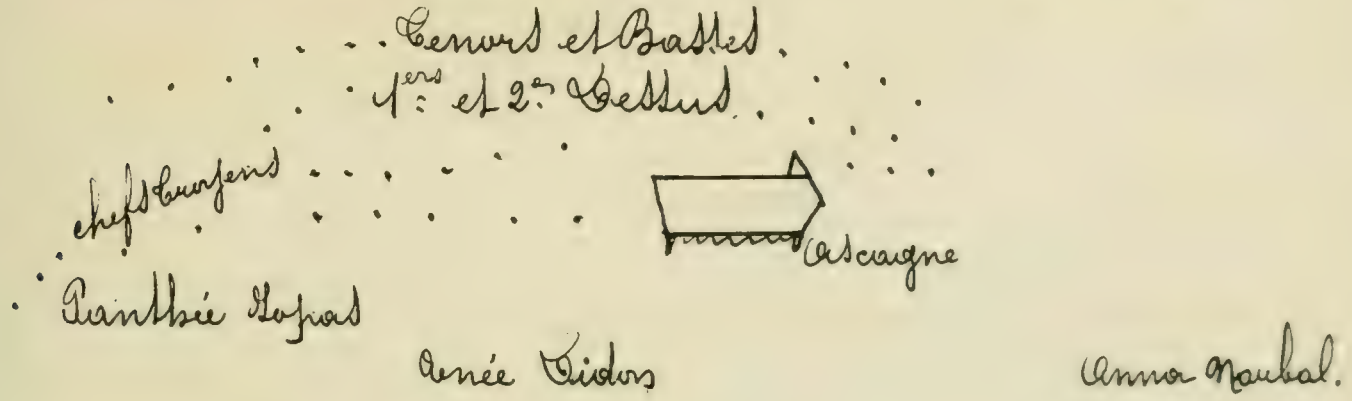 Tenors et Basses.
1ers et 2es Dessus.
chefs troyens
Ascagne
Panthée Iopas
Enée Didon
Anna Narbal.